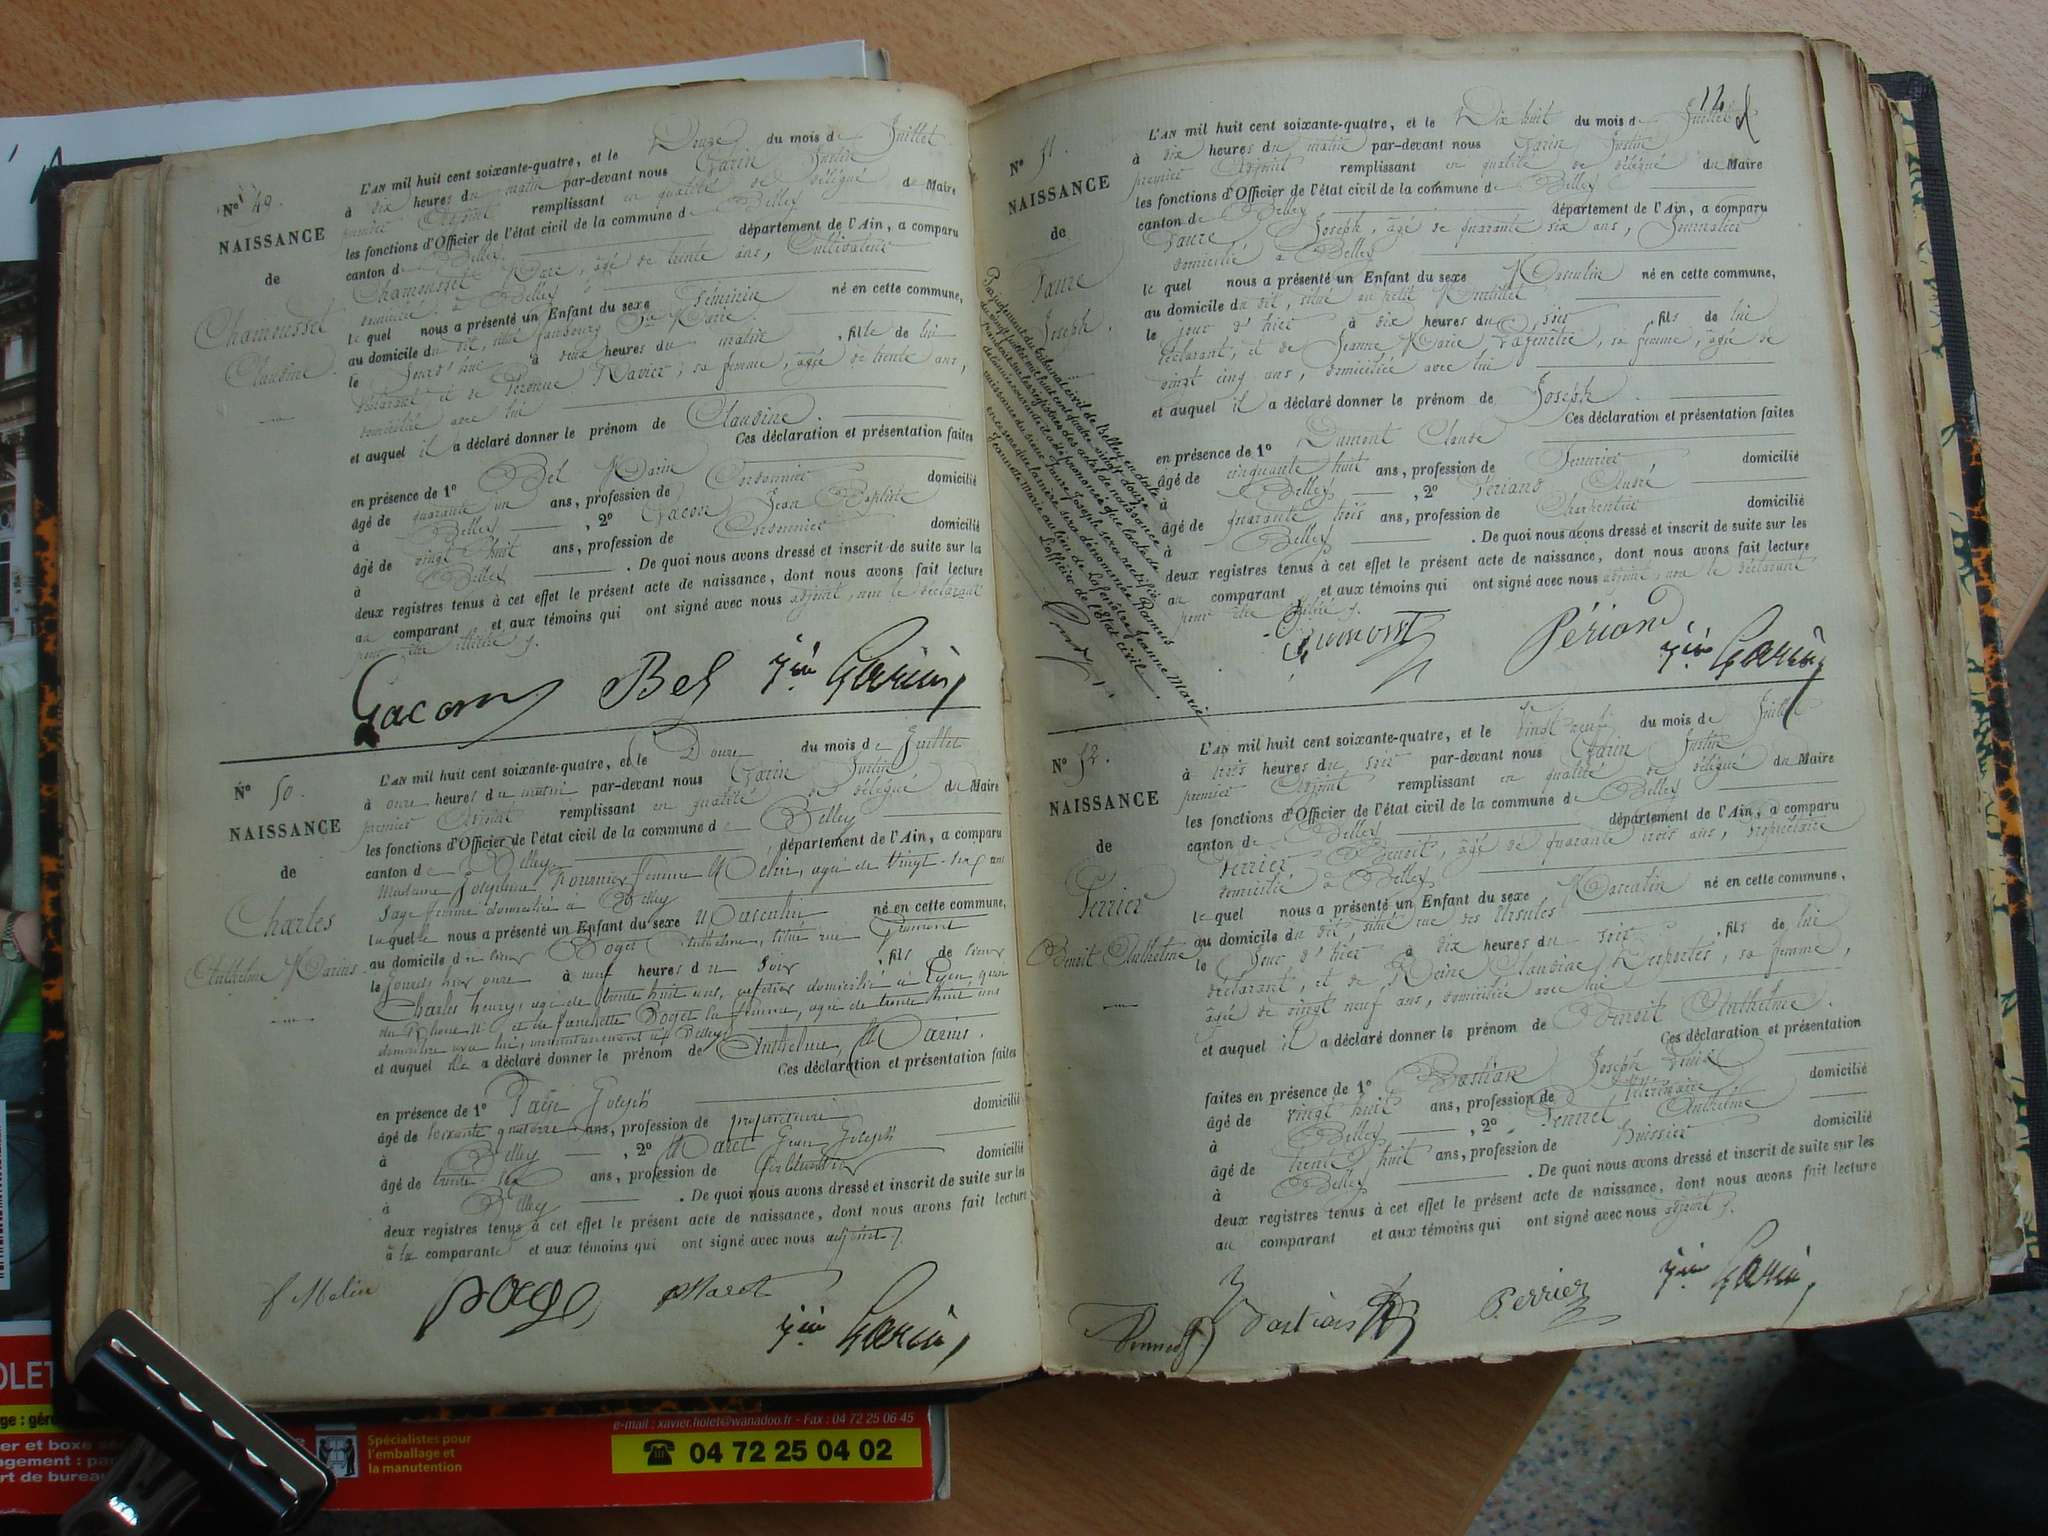 N° 49.
NAISSANCE
de
Chamousset
Claudine.
L'AN mil huit cent soixante-quatre, et le Douze du mois de Juillet
à dix heures du matin par-devant nous Garin Justin
premier Adjoint remplissant en qualité de délégué du Maire
les fonctions d'Officier de l'état civil de la commune de Belley
canton de Belley département de l'Ain, a comparu
Chamousset Marc, âgé de trente ans, Cultivateur
domicilié à Belley
le quel nous a présenté un Enfant du sexe Féminin né en cette commune,
au domicile du dit, situé faubourg Ste Marie
le jourd'hui à deux heures du matin, fille de lui
déclarant et de Péronne Ravier, sa femme, âgée de trente ans,
domiciliée avec lui
et auquel il a déclaré donner le prénom de Claudine.
Ces déclaration et présentation faites
en présence de 1° Bel Marin domicilié
âgé de quarante un ans, profession de Cordonnier
à Belley, 2° Gacon Jean Baptiste
âgé de vingt huit ans, profession de Cordonnier domicilié
à Belley. De quoi nous avons dressé et inscrit de suite sur les
deux registres tenus à cet effet le présent acte de naissance, dont nous avons fait lecture
au comparant et aux témoins qui ont signé avec nous adjoint, non le déclarant
pour être illitéré
Gacon Bel Jin Garin
N° 50.
NAISSANCE
de
Charles
Anthelme Marius.
L'AN mil huit cent soixante-quatre, et le Douze du mois de Juillet
à onze heures du matin par-devant nous Garin Justin
premier Adjoint remplissant en qualité de délégué du Maire
les fonctions d'Officier de l'état civil de la commune de Belley
canton de Belley département de l'Ain, a comparu
Madame Joséphine Fournier femme Melin, agée de vingt-six ans
sage femme domiciliée à Belley
laquelle nous a présenté un Enfant du sexe Masculin né en cette commune,
au domicile du sieur Boget Anthelme, situé rue
le jour d'hier onze à neuf heures du soir, fils de sieur
Charles henry, agé de trente huit ans, domicilié à Lyon
du Rhone et de Boget sa femme, agée de trente huit ans
domiciliée avec lui, momentanement à Belley
et auquel elle a déclaré donner le prénom de Anthelme Marius.
Ces déclaration et présentation faites
en présence de 1° Joseph domicilié
âgé de soixante quatorze ans, profession de propriétaire
à Belley, 2° Maret Jean Joseph
âgé de trente six ans, profession de domicilié
à Belley. De quoi nous avons dressé et inscrit de suite sur les
deux registres tenus à cet effet le présent acte de naissance, dont nous avons fait lecture
à la comparante et aux témoins qui ont signé avec nous adjoint
f Melin Maret
Jin Garin
N° 51.
NAISSANCE
de
Faure
Joseph.
Par jugement du tribunal civil de Belley en date
du vingt juillet mil huit cent quatre vingt douze
transcrit sur les registres des actes de naissance
de la mère sera dénommée Ramus
Jeannette Marie au lieu de Lafenêtre Jeanne Marie
L'officier de l'Etat civil.
L'AN mil huit cent soixante-quatre, et le Dix huit du mois de Juillet
à dix heures du matin par-devant nous Garin Justin
premier Adjoint remplissant en qualité de délégué du Maire
les fonctions d'Officier de l'état civil de la commune de Belley
canton de Belley département de l'Ain, a comparu
Faure Joseph, âgé de quarante six ans, Journalier
domicilié à Belley
le quel nous a présenté un Enfant du sexe Masculin né en cette commune,
au domicile du dit, situé au petit
le jour d'hier à dix heures du soir, fils de lui
déclarant, et de Jeanne Marie Lafenêtre, sa femme, âgée de
vingt cinq ans, domiciliée avec lui
et auquel il a déclaré donner le prénom de Joseph.
Ces déclaration et présentation faites
en présence de 1° Dumont Claude domicilié
âgé de cinquante huit ans, profession de Serrurier
à Belley, 2° Périand André
âgé de quarante trois ans, profession de Charpentier domicilié
à Belley. De quoi nous avons dressé et inscrit de suite sur les
deux registres tenus à cet effet le présent acte de naissance, dont nous avons fait lecture
au comparant et aux témoins qui ont signé avec nous adjoint, non le déclarant
pour être illitéré
Dumont Périand Jin Garin
N° 52.
NAISSANCE
de
Perrier
Benoit Anthelme
L'AN mil huit cent soixante-quatre, et le Vingt neuf du mois de Juillet
à trois heures du soir par-devant nous Garin Justin
premier Adjoint remplissant en qualité de délégué du Maire
les fonctions d'Officier de l'état civil de la commune de Belley
canton de Belley département de l'Ain, a comparu
Perrier Benoit, âgé de quarante trois ans, propriétaire
domicilié à Belley
le quel nous a présenté un Enfant du sexe Masculin né en cette commune,
au domicile du dit situé rue des Ursules
le jour d'hier à dix heures du soir, fils de lui
déclarant, et de Reine Claudine Desportes, sa femme,
âgée de vingt neuf ans, domiciliée avec lui
et auquel il a déclaré donner le prénom de Benoit Anthelme.
Ces déclaration et présentation
faites en présence de 1° Bastian Joseph domicilié
âgé de vingt huit ans, profession de Vétérinaire
à Belley, 2° Anthelme
âgé de trente huit ans, profession de huissier domicilié
à Belley. De quoi nous avons dressé et inscrit de suite sur les
deux registres tenus à cet effet le présent acte de naissance, dont nous avons fait lecture
au comparant et aux témoins qui ont signé avec nous adjoint
Bastian Perrier Jin Garin
e-mail : xavier.fiolet@wanadoo.fr - Fax : 04 72 25 06 45
Spécialistes pour
l'emballage et
la manutention
04 72 25 04 02